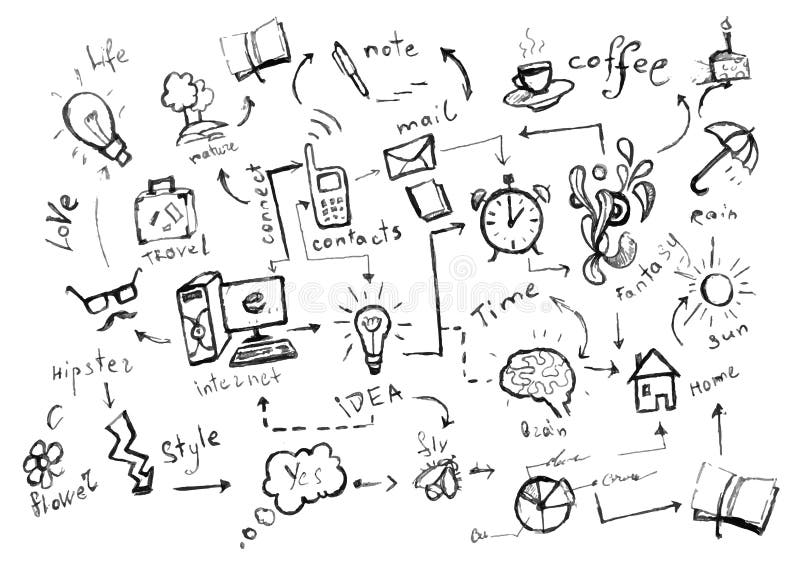 Life
note
coffee
mail
nature
Love
connect
Rain
TRAVEL
contacts
Fantasy
Time
e
Sun
Hipster
internet
Home
iDEA
Brain
fly
Style
Yes
flower
dreamstime